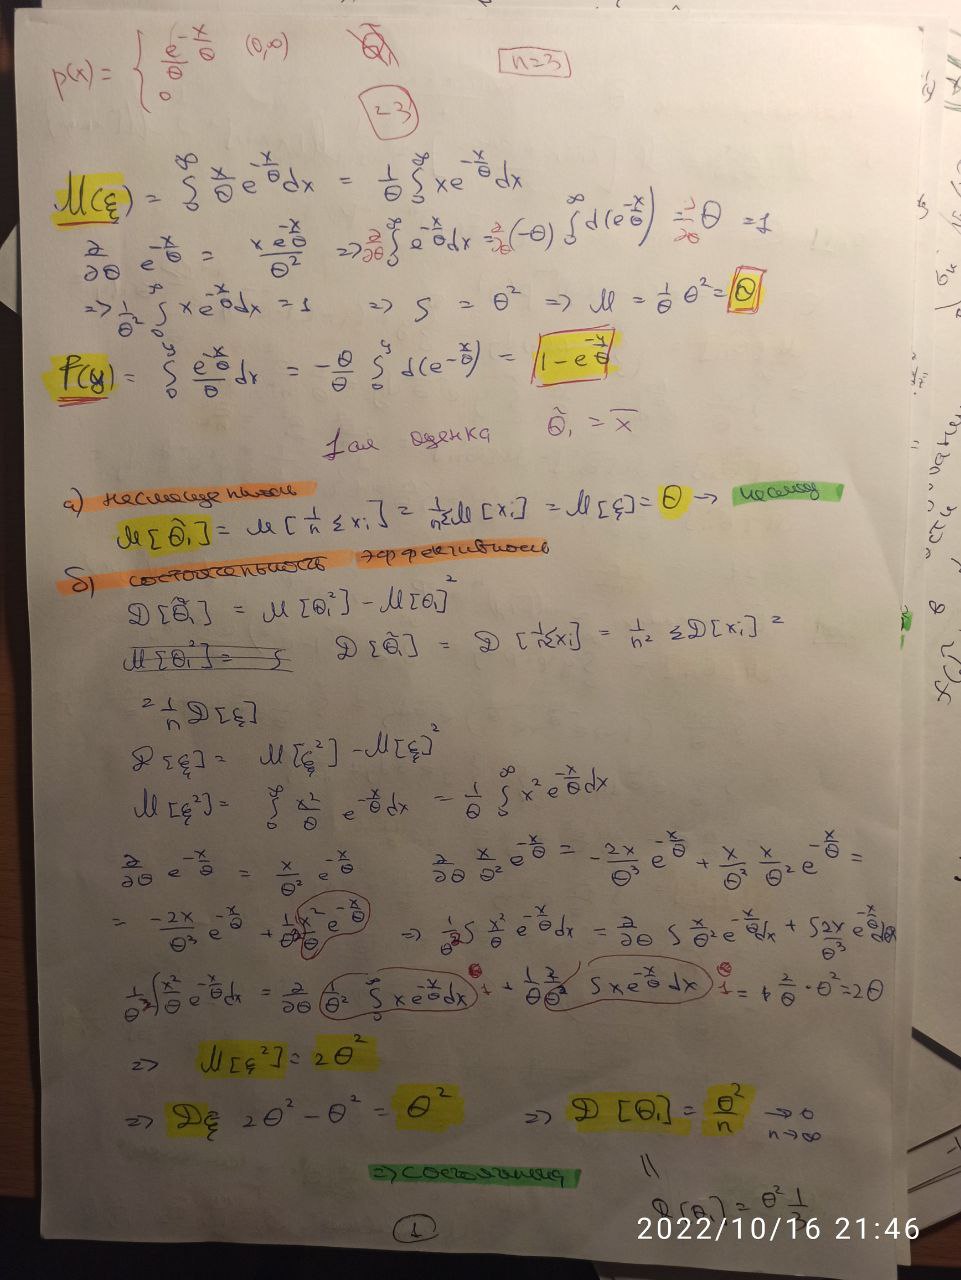 p(x) = { e^{-x/θ}/θ (0,∞)
0
n=3
z-3
M(ξ) = ∫₀^∞ x/θ e^{-x/θ} dx = 1/θ ∫₀^∞ x e^{-x/θ} dx
∂/∂θ e^{-x/θ} = x e^{-x/θ}/θ² => ∂/∂θ ∫₀^∞ e^{-x/θ} dx = ∂/∂θ (-θ) ∫₀^∞ d(e^{-x/θ}) = ∂/∂θ θ = 1
=> 1/θ² ∫₀^∞ x e^{-x/θ} dx = 1 => ∫ = θ² => M = 1/θ θ² = θ
F(y) = ∫₀^y e^{-x/θ}/θ dx = -θ/θ ∫₀^y d(e^{-x/θ}) = 1 - e^{-y/θ}
1ая оценка θ̃₁ = x̄
а) несмещенность
M[θ̃₁] = M[1/n Σxᵢ] = 1/n ΣM[xᵢ] = M[ξ] = θ → несмещ
б) состоятельность эффективность
D[θ̃₁] = M[θ₁²] - M[θ₁]²
M[θ₁²] = ∫ D[θ̃₁] = D[1/n Σxᵢ] = 1/n² ΣD[xᵢ] =
= 1/n D[ξ]
D[ξ] = M[ξ²] - M[ξ]²
M[ξ²] = ∫₀^∞ x²/θ e^{-x/θ} dx = 1/θ ∫₀^∞ x² e^{-x/θ} dx
∂/∂θ e^{-x/θ} = x/θ² e^{-x/θ} ∂/∂θ x/θ² e^{-x/θ} = -2x/θ³ e^{-x/θ} + x/θ² x/θ² e^{-x/θ} =
= -2x/θ³ e^{-x/θ} + 1/θ³ x²/θ e^{-x/θ} => 1/θ³ ∫ x²/θ e^{-x/θ} dx = ∂/∂θ ∫ x/θ² e^{-x/θ} dx + ∫ 2x/θ³ e^{-x/θ} dx
1/θ² ∫ x²/θ e^{-x/θ} dx = ∂/∂θ 1/θ² ∫₀^∞ x e^{-x/θ} dx + 1/θ 2/θ² ∫ x e^{-x/θ} dx = + 2/θ · θ² = 2θ
=> M[ξ²] = 2θ²
=> Dξ 2θ² - θ² = θ² => D[θ₁] = θ²/n → 0 n→∞
=> состоятельная
D[θ₁] = θ² 1/3
1
2022/10/16 21:46